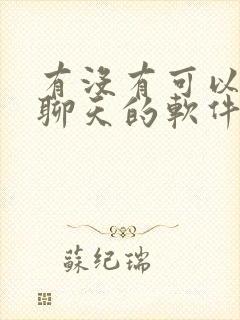 有没有可以
聊天的軟件
蘇纪瑞